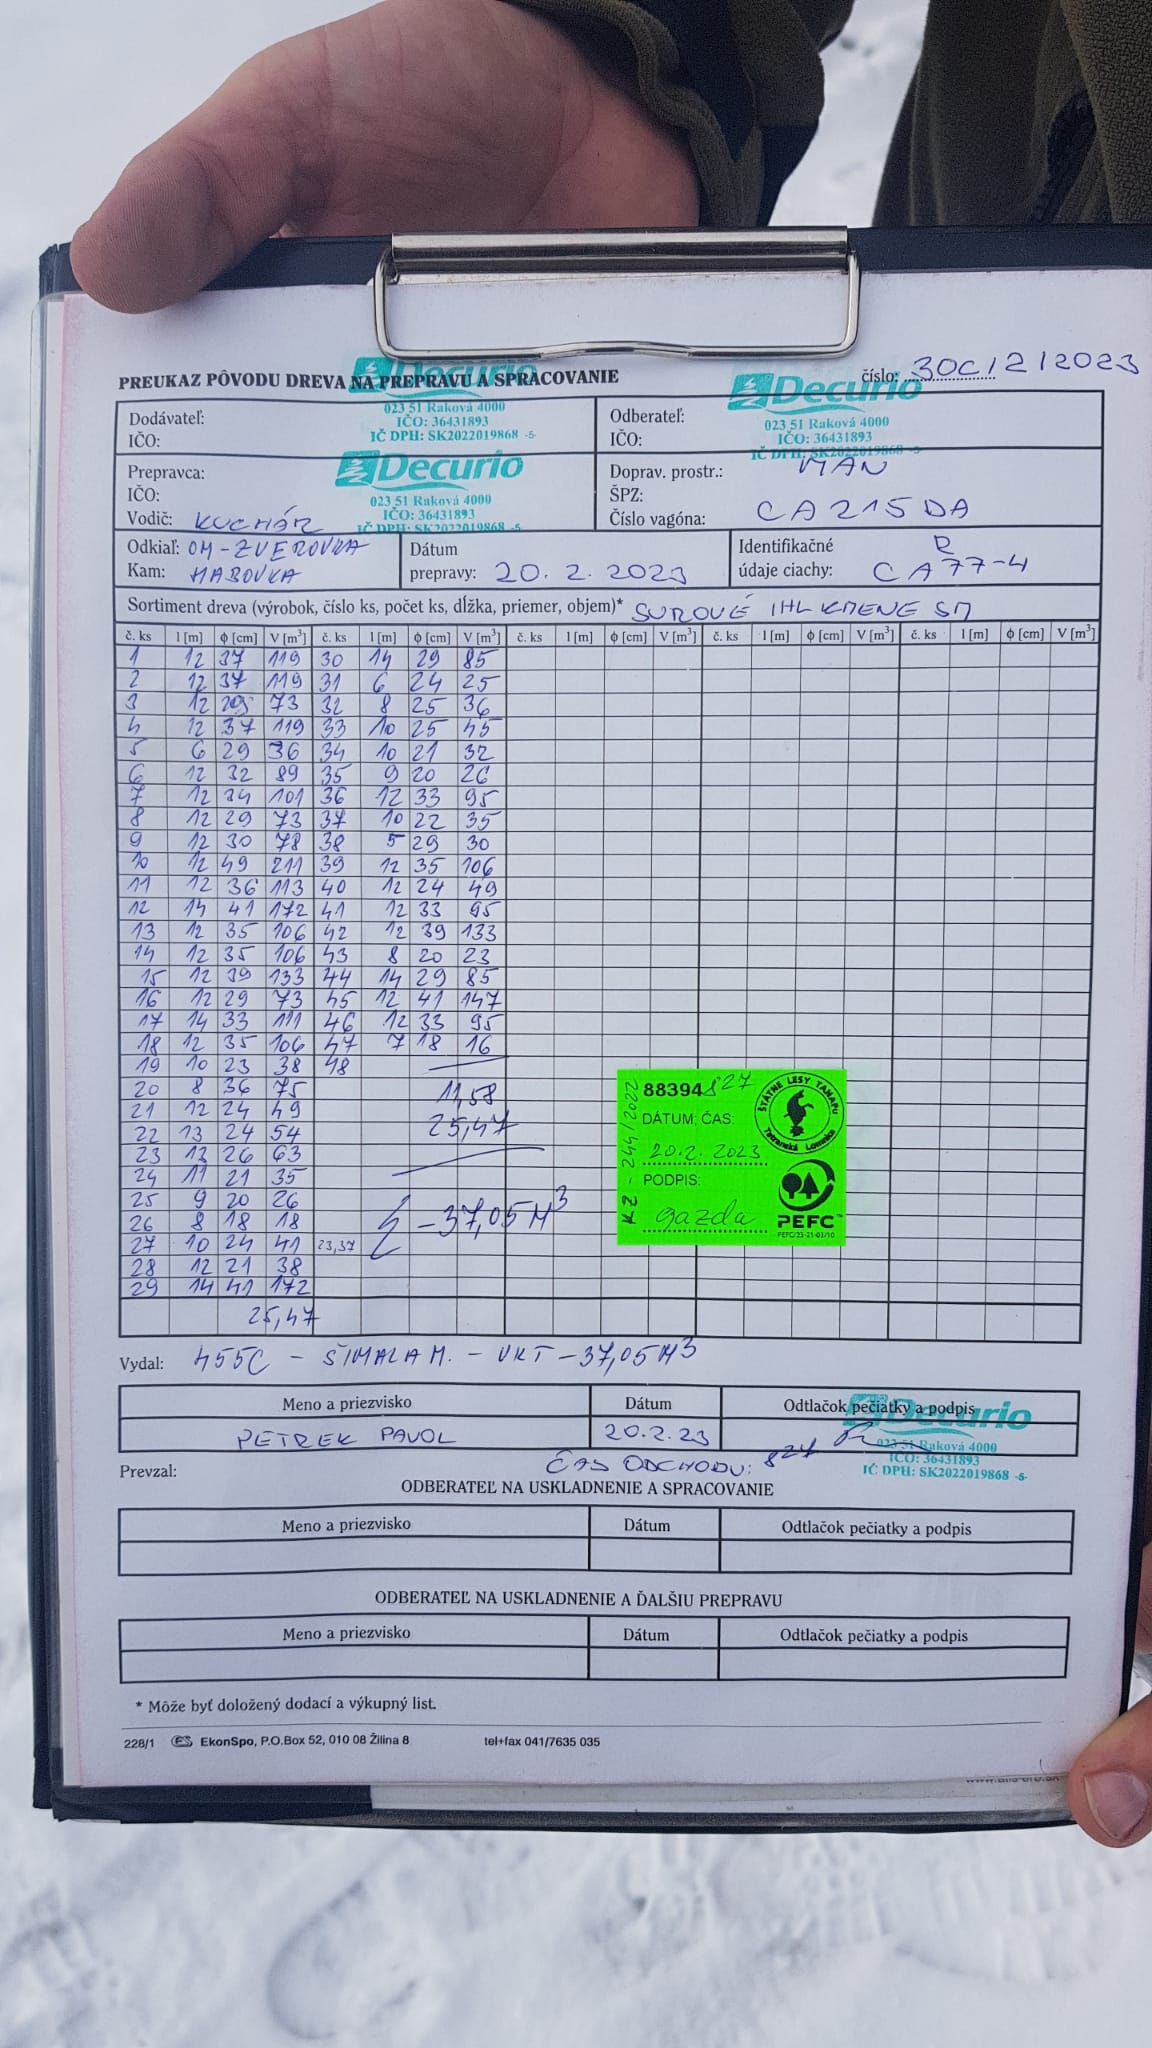 PREUKAZ PÔVODU DREVA NA PREPRAVU A SPRACOVANIE
číslo: 30C/2/2023
Decurio
023 51 Raková 4000
IČO: 36431893
IČ DPH: SK2022019868 -5-
Decurio
023 51 Raková 4000
IČO: 36431893
IČ DPH: SK2022019868 -5-
Dodávateľ:
IČO:
Odberateľ:
IČO:
Prepravca:
IČO:
Vodič: KUCHÁR
Decurio
023 51 Raková 4000
IČO: 36431893
IČ DPH: SK2022019868 -5-
Doprav. prostr.: MAN
ŠPZ:
Číslo vagóna: CA215DA
Odkiaľ: OM-ZVEROVKA
Kam: HABOVKA
Dátum
prepravy: 20. 2. 2023
Identifikačné
údaje ciachy: CA 77-4
Sortiment dreva (výrobok, číslo ks, počet ks, dĺžka, priemer, objem)* SUROVÉ IHL KMENE SM
č. ks l [m] ϕ [cm] V [m³] č. ks l [m] ϕ [cm] V [m³] č. ks l [m] ϕ [cm] V [m³] č. ks l [m] ϕ [cm] V [m³] č. ks l [m] ϕ [cm] V [m³]
1 12 37 119 30 14 29 85
2 12 37 119 31 6 24 25
3 12 29 73 32 8 25 36
4 12 37 119 33 10 25 45
5 6 29 36 34 10 21 32
6 12 32 89 35 9 20 26
7 12 34 101 36 12 33 95
8 12 29 73 37 10 22 35
9 12 30 78 38 5 29 30
10 12 49 211 39 12 35 106
11 12 36 113 40 12 24 49
12 14 41 172 41 12 33 95
13 12 35 106 42 12 39 133
14 12 35 106 43 8 20 23
15 12 39 133 44 14 29 85
16 12 29 73 45 12 41 147
17 14 33 111 46 12 33 95
18 12 35 106 47 7 18 16
19 10 23 38 48
20 8 36 75 11,58
21 12 24 49
22 13 24 54 25,47
23 13 26 63
24 11 21 35
25 9 20 26
26 8 18 18 - 37,05 M3
27 10 24 41 23,37
28 12 21 38
29 14 41 172
25,47
88394 827
DÁTUM; ČAS:
20.2. 2023
PODPIS:
gazda
KZ - 244/2022
ŠTÁTNE LESY TANAPU
Tatranská Lomnica
PEFC™
PEFC/23-21-03/10
Vydal: 455C - ŠIMALA M. - VKT - 37,05 M3
Meno a priezvisko Dátum Odtlačok pečiatky a podpis
PETREK PAVOL 20.2.23
Decurio
023 51 Raková 4000
IČO: 36431893
IČ DPH: SK2022019868 -5-
ČAS ODCHODU: 827
Prevzal:
ODBERATEĽ NA USKLADNENIE A SPRACOVANIE
Meno a priezvisko Dátum Odtlačok pečiatky a podpis
ODBERATEĽ NA USKLADNENIE A ĎALŠIU PREPRAVU
Meno a priezvisko Dátum Odtlačok pečiatky a podpis
* Môže byť doložený dodací a výkupný list.
228/1 ES EkonSpo, P.O.Box 52, 010 08 Žilina 8 tel+fax 041/7635 035